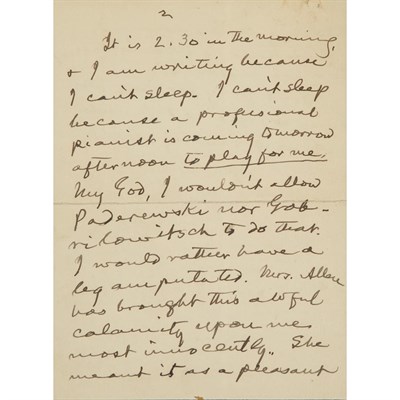 2
It is 2.30 in the morning,
& I am writing because
I can't sleep. I can't sleep
because a professional
pianist is coming tomorrow
afternoon to play for me.
My God, I wouldn't allow
Paderewski nor Gab-
rilowitsch to do that.
I would rather have a
leg amputated. Mrs. Allen
has brought this awful
calamity upon me
most innocently. She
meant it as a pleasant